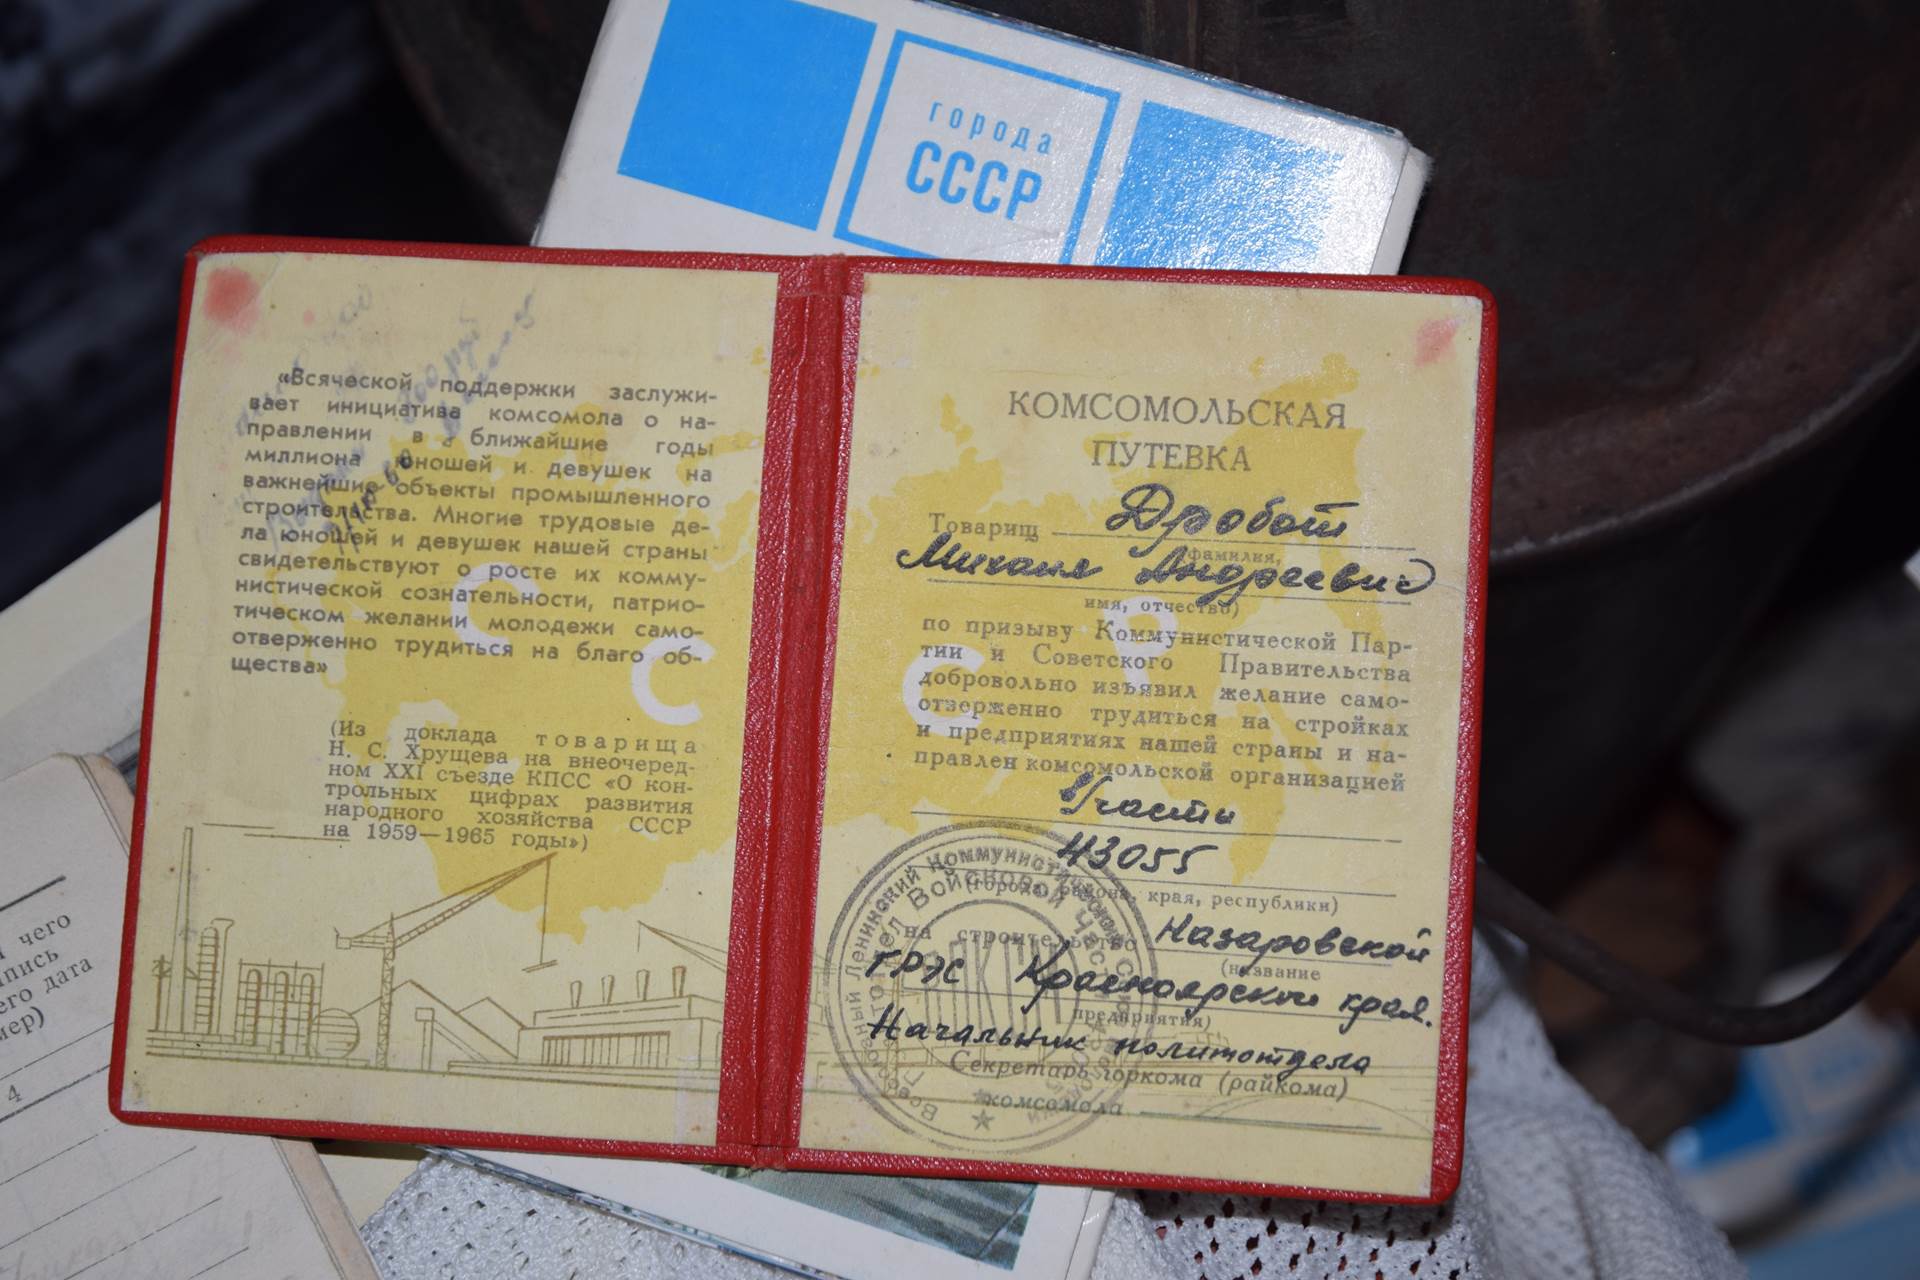 города
СССР
«Всяческой поддержки заслужи-
вает инициатива комсомола о на-
правлении в ближайшие годы
миллиона юношей и девушек на
важнейшие объекты промышленного
строительства. Многие трудовые де-
ла юношей и девушек нашей страны
свидетельствуют о росте их комму-
нистической сознательности, патрио-
тическом желании молодежи само-
отверженно трудиться на благо об-
щества»
(Из доклада товарища
Н. С. Хрущева на внеочеред-
ном XXI съезде КПСС «О кон-
трольных цифрах развития
народного хозяйства СССР
на 1959—1965 годы»)
С С С Р
КОМСОМОЛЬСКАЯ
ПУТЕВКА
Товарищ Дробот
фамилия,
Михаил Андреевич
имя, отчество)
по призыву Коммунистической Пар-
тии и Советского Правительства
добровольно изъявил желание само-
отверженно трудиться на стройках
и предприятиях нашей страны и на-
правлен комсомольской организацией
в/части
43055
(города, района, края, республики)
на строительство Назаровской
(название
ГРЭС Красноярский края.
предприятия)
Начальник политотдела
Секретарь горкома (райкома)
комсомола
Всесоюзный Ленинский Коммунистический
Политотдел Войсковой части
чего
его дата
4